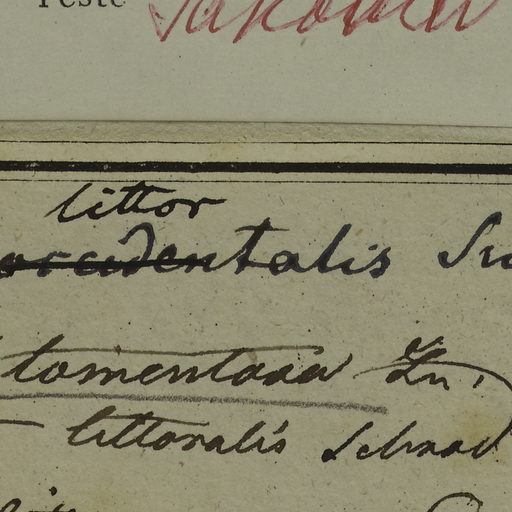 Teste
littor
occidentalis
tomentosa Ln.
littoralis Schrad